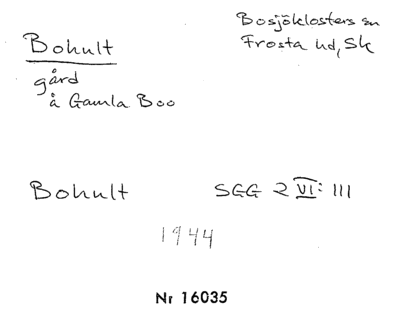 Bohult
Bosjöklosters sn
Frosta hd, Sk
gård
å Gamla Boo
Bohult SGG 2 VI: 111
1944
Nr 16035